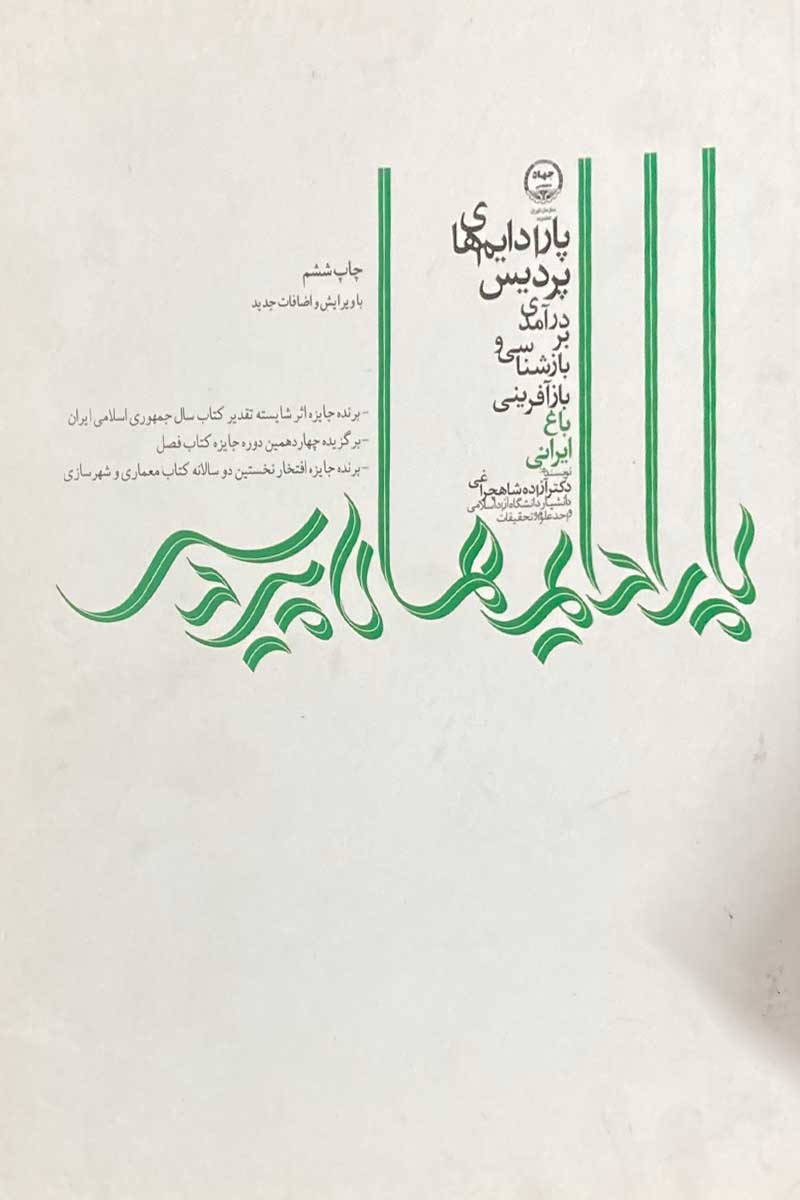 جهاد
پارادایم‌های
پردیس
درآمدی
بر
بازشناسی و
بازآفرینی
باغ
ایرانی
نویسنده:
دکتر آزاده شاهچراغی
دانشیار دانشگاه آزاد اسلامی
واحد علوم و تحقیقات
چاپ ششم
با ویرایش و اضافات جدید
- برنده جایزه اثر شایسته تقدیر کتاب سال جمهوری اسلامی ایران
- برگزیده چهاردهمین دوره جایزه کتاب فصل
- برنده جایزه افتخار نخستین دوسالانه کتاب معماری و شهرسازی
پارادایم‌های پردیس